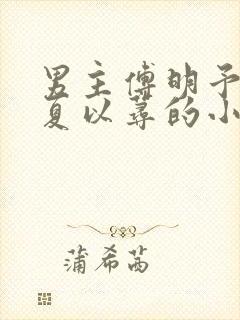 男主傅明予
夏以蓦的小
蒲希茜